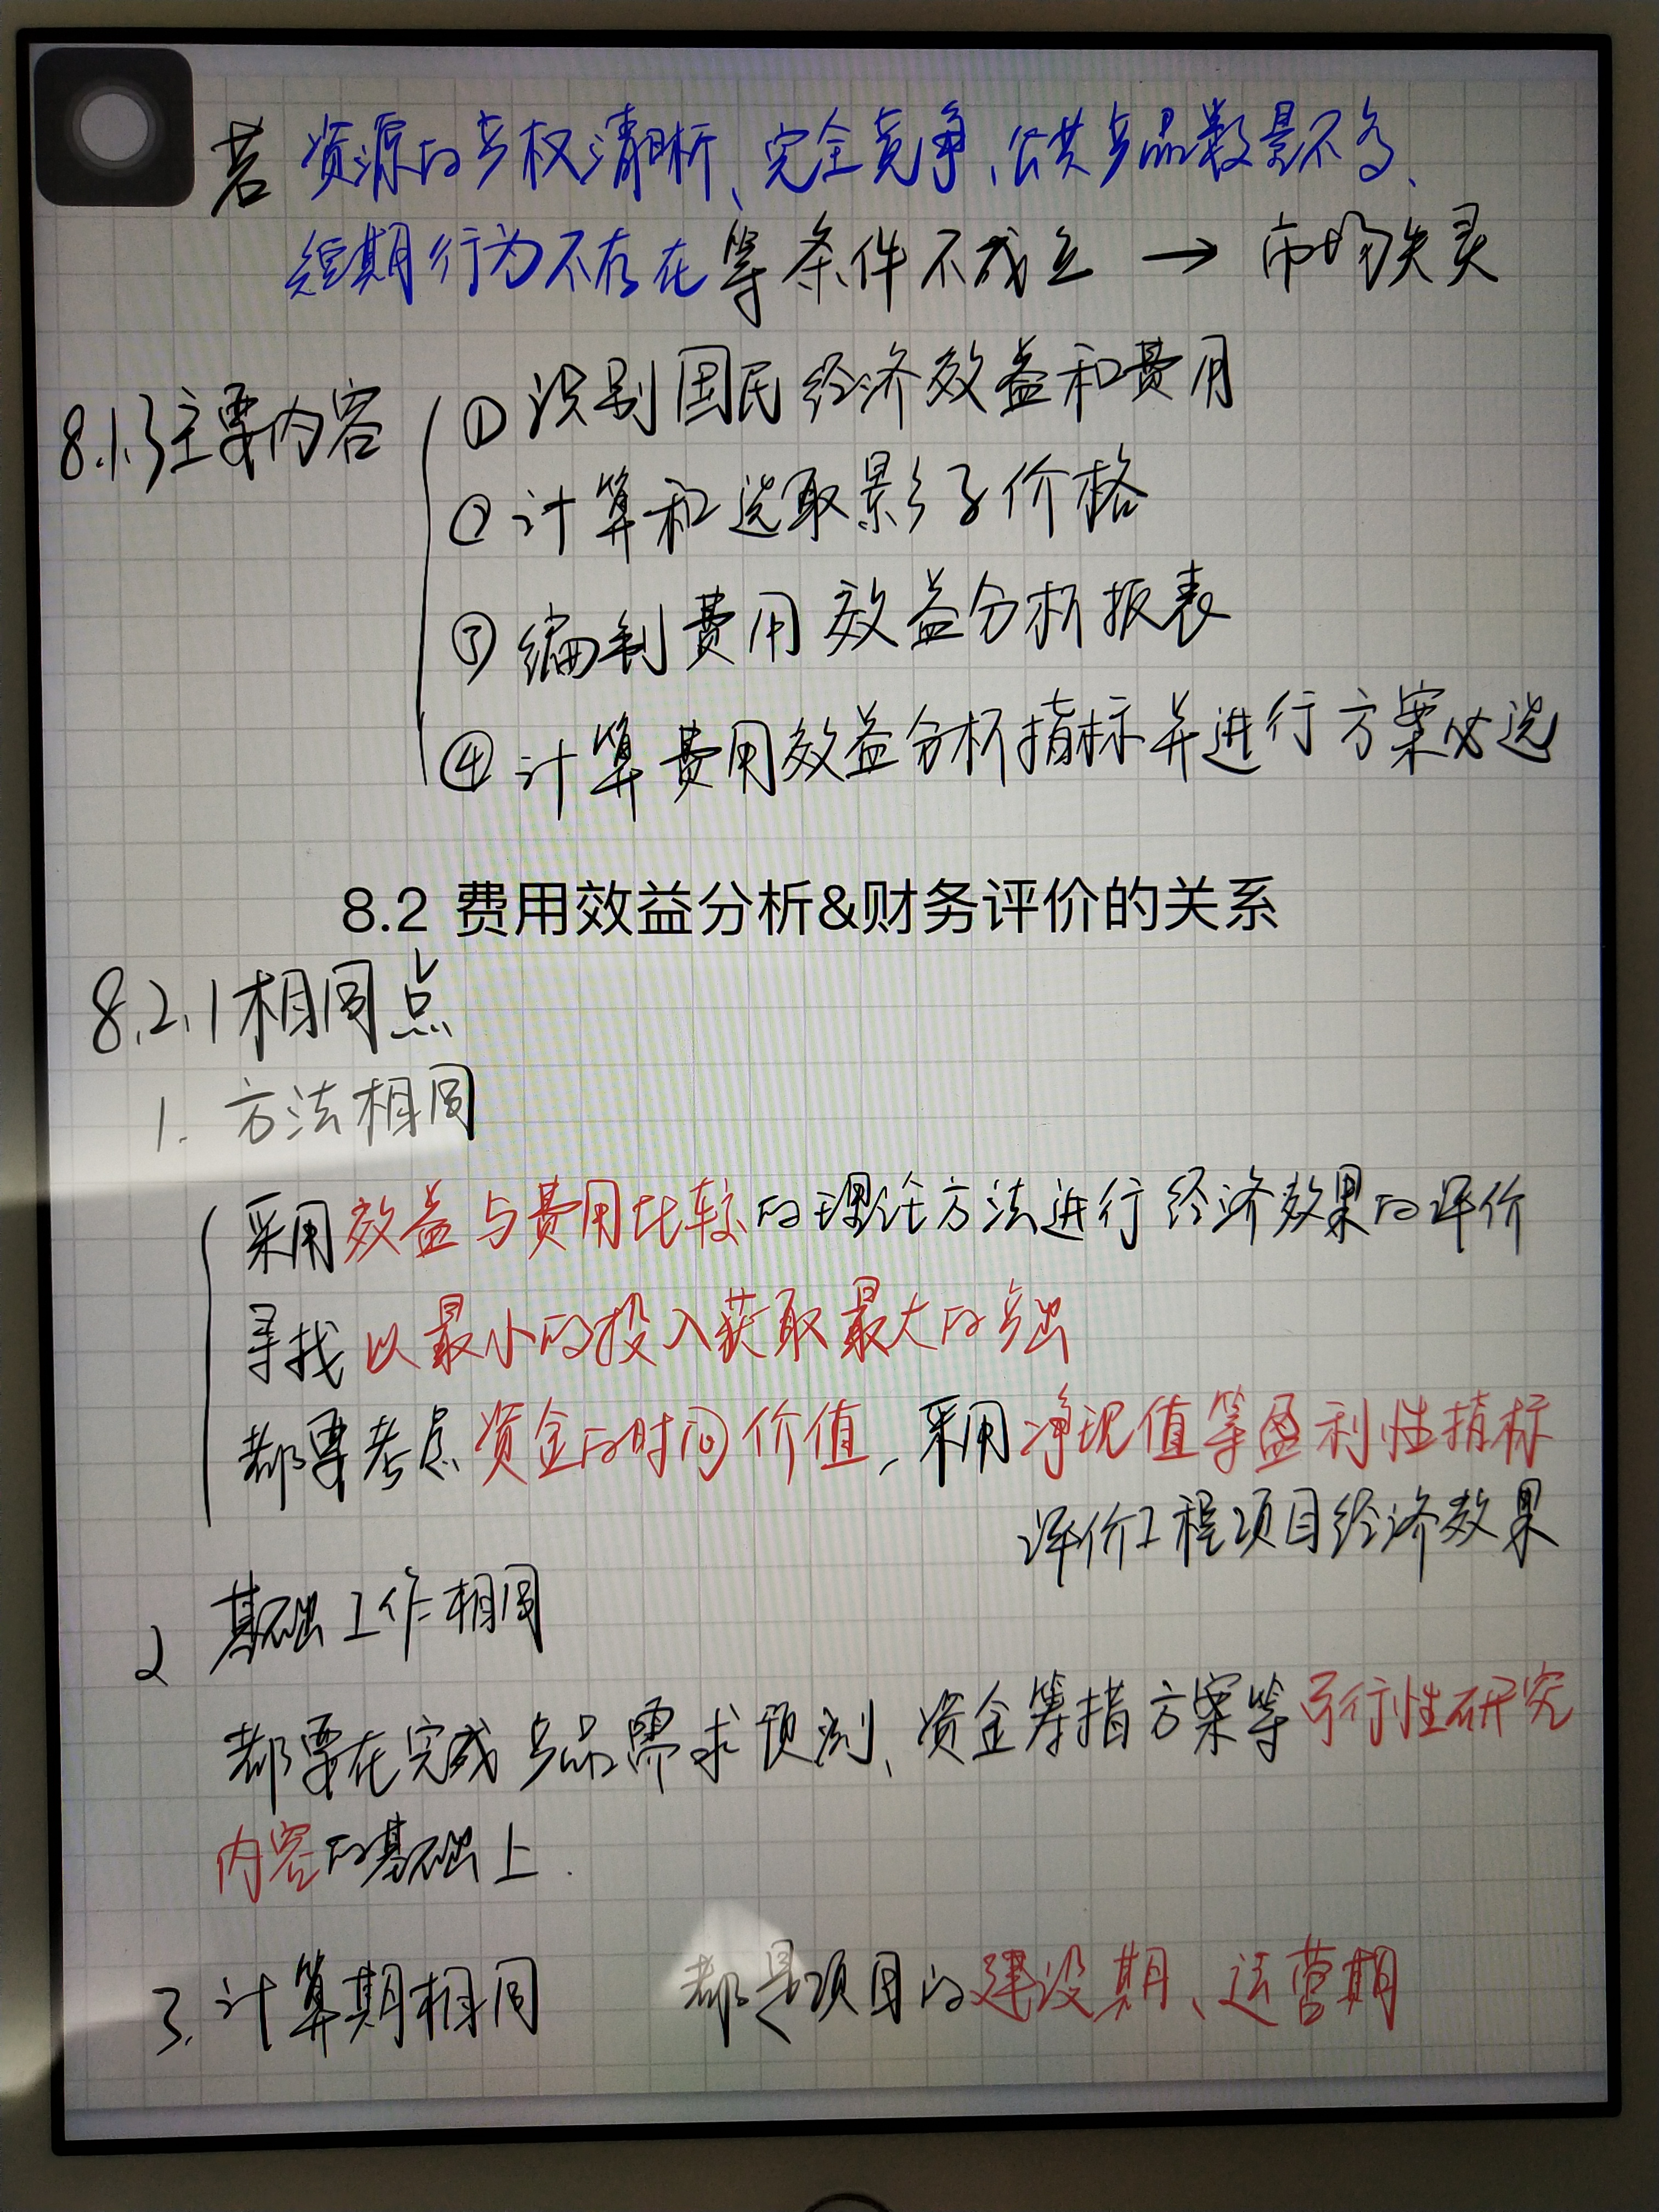 若 资源的产权清晰、完全竞争、公共产品数量不多、
短期行为不存在等条件不成立 → 市场失灵
8.1.3主要内容
①识别国民经济效益和费用
②计算和选取影子价格
③编制费用效益分析报表
④计算费用效益分析指标并进行方案比选
8.2 费用效益分析&财务评价的关系
8.2.1相同点
1. 方法相同
采用效益与费用比较的理论方法进行经济效果的评价
寻找以最小的投入获取最大的产出
都要考虑资金的时间价值,采用净现值等盈利性指标
评价工程项目经济效果
2 基础工作相同
都要在完成产品需求预测、资金筹措方案等可行性研究
内容的基础上.
3.计算期相同 都是项目的建设期、运营期